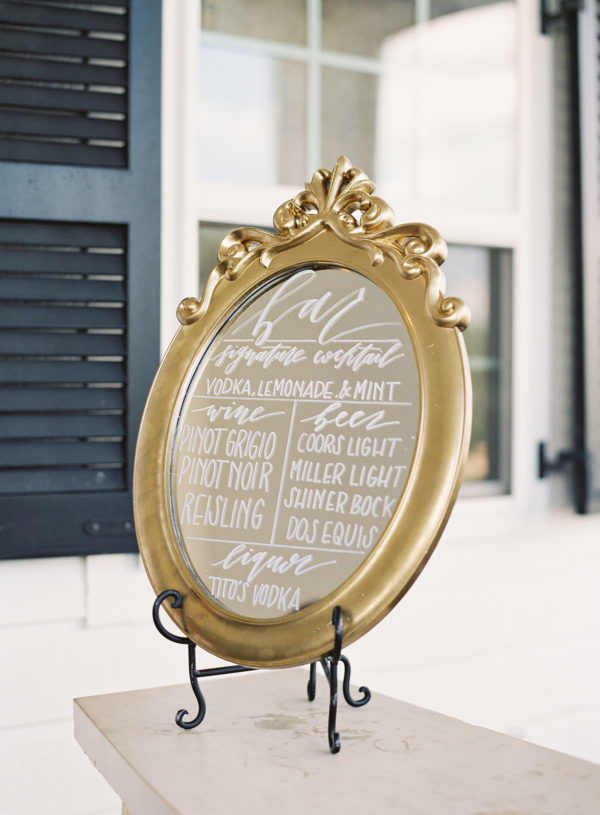 bar
signature cocktail
VODKA, LEMONADE, & MINT
wine
PINOT GRIGIO
PINOT NOIR
REISLING
beer
COORS LIGHT
MILLER LIGHT
SHINER BOCK
DOS EQUIS
liquor
TITO'S VODKA